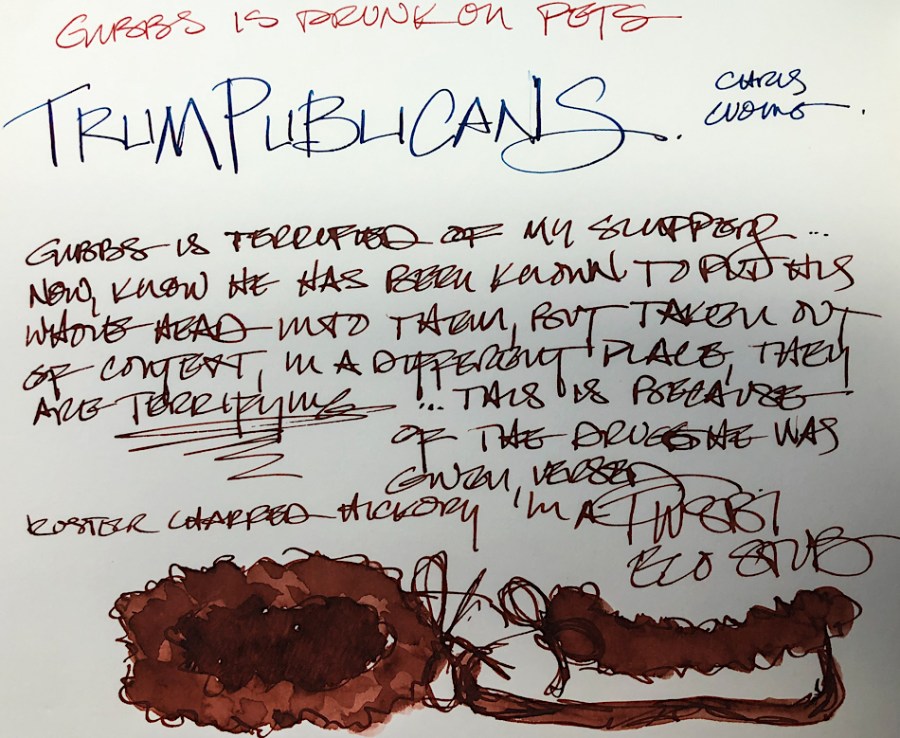 GUBBS IS DRUNK ON PETS
TRUMPUBLICANS.
CHRIS
CUOMO.
GUBBS IS TERRIFIED OF MY SLIPPERS...
NOW, KNOW HE HAS BEEN KNOWN TO PUT HIS
WHOLE HEAD INTO THEM, BUT TAKEN OUT
OF CONTEXT, IN A DIFFERENT PLACE, THEY
ARE TERRIFYING ... THIS IS BECAUSE
OF THE DRUGS HE WAS
GIVEN, VERSED
KOSTER CHARRED HICKORY IN A TWSBI
ECO STUB